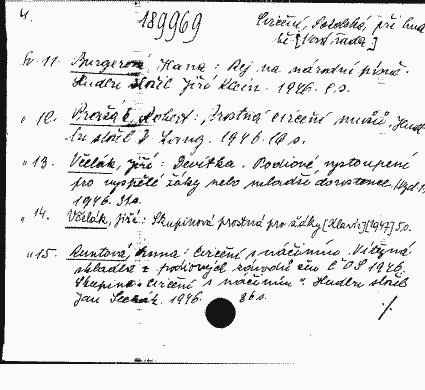 4.
189969 Cvičení, Sokolská, při hud
bě [Nová řada]
Sv. 11. Burgerová, Hana: Rej na národní písně.
Hudbu složil Jiří Klein. 1946. s.
" 12. Pražák, Robert: Prostná cvičení mužů. Hud-
bu složil J. Lang. 1946. s.
" 13. Včelák, Jiří: Devítka. Pódiové vystoupení
pro vyspělé žáky nebo mladší dorostence.
1946. 31 s.
" 14. Včelák, Jiří: Skupinová prostná pro žáky [Klavír] [1947] 5 s.
" 15. Runtová, Anna: Cvičení s náčiním. Vítězná
skladba z pódiových závodů žen ČOS 1946.
Skupina: Cvičení s náčiním". Hudbu složil
Jan 1946. 36 s.
./.